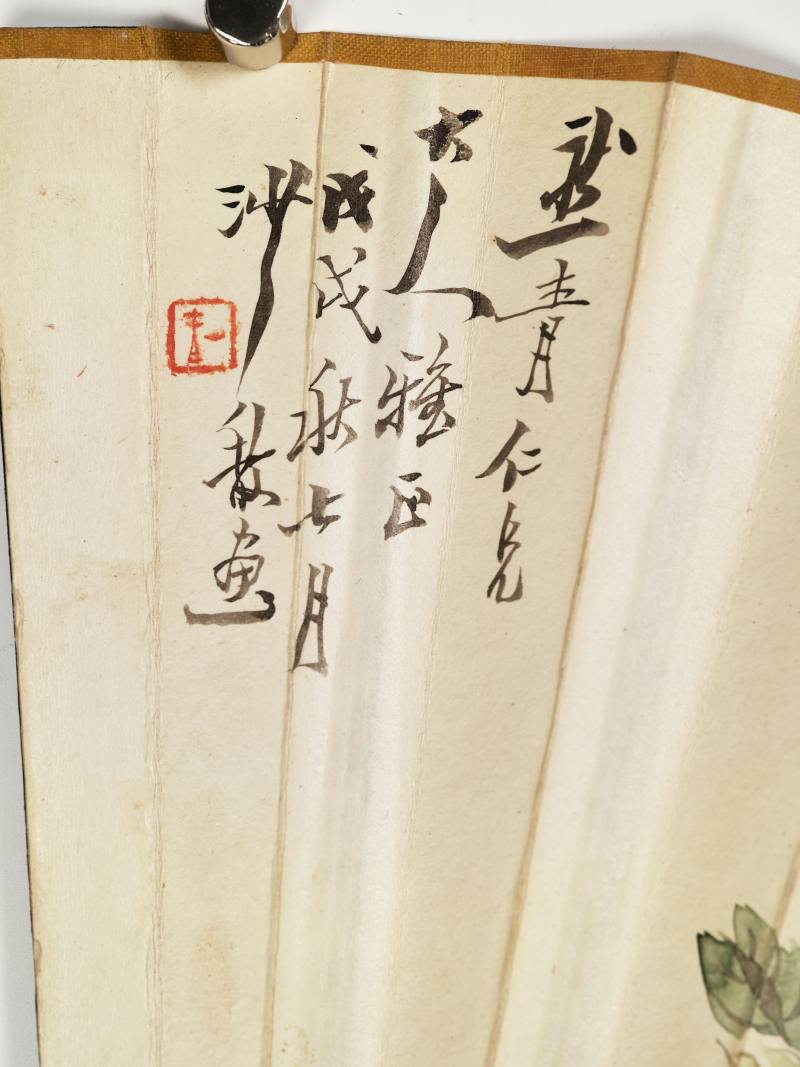 青仁兄
大人雅正
戊戌秋七月
沙馥画